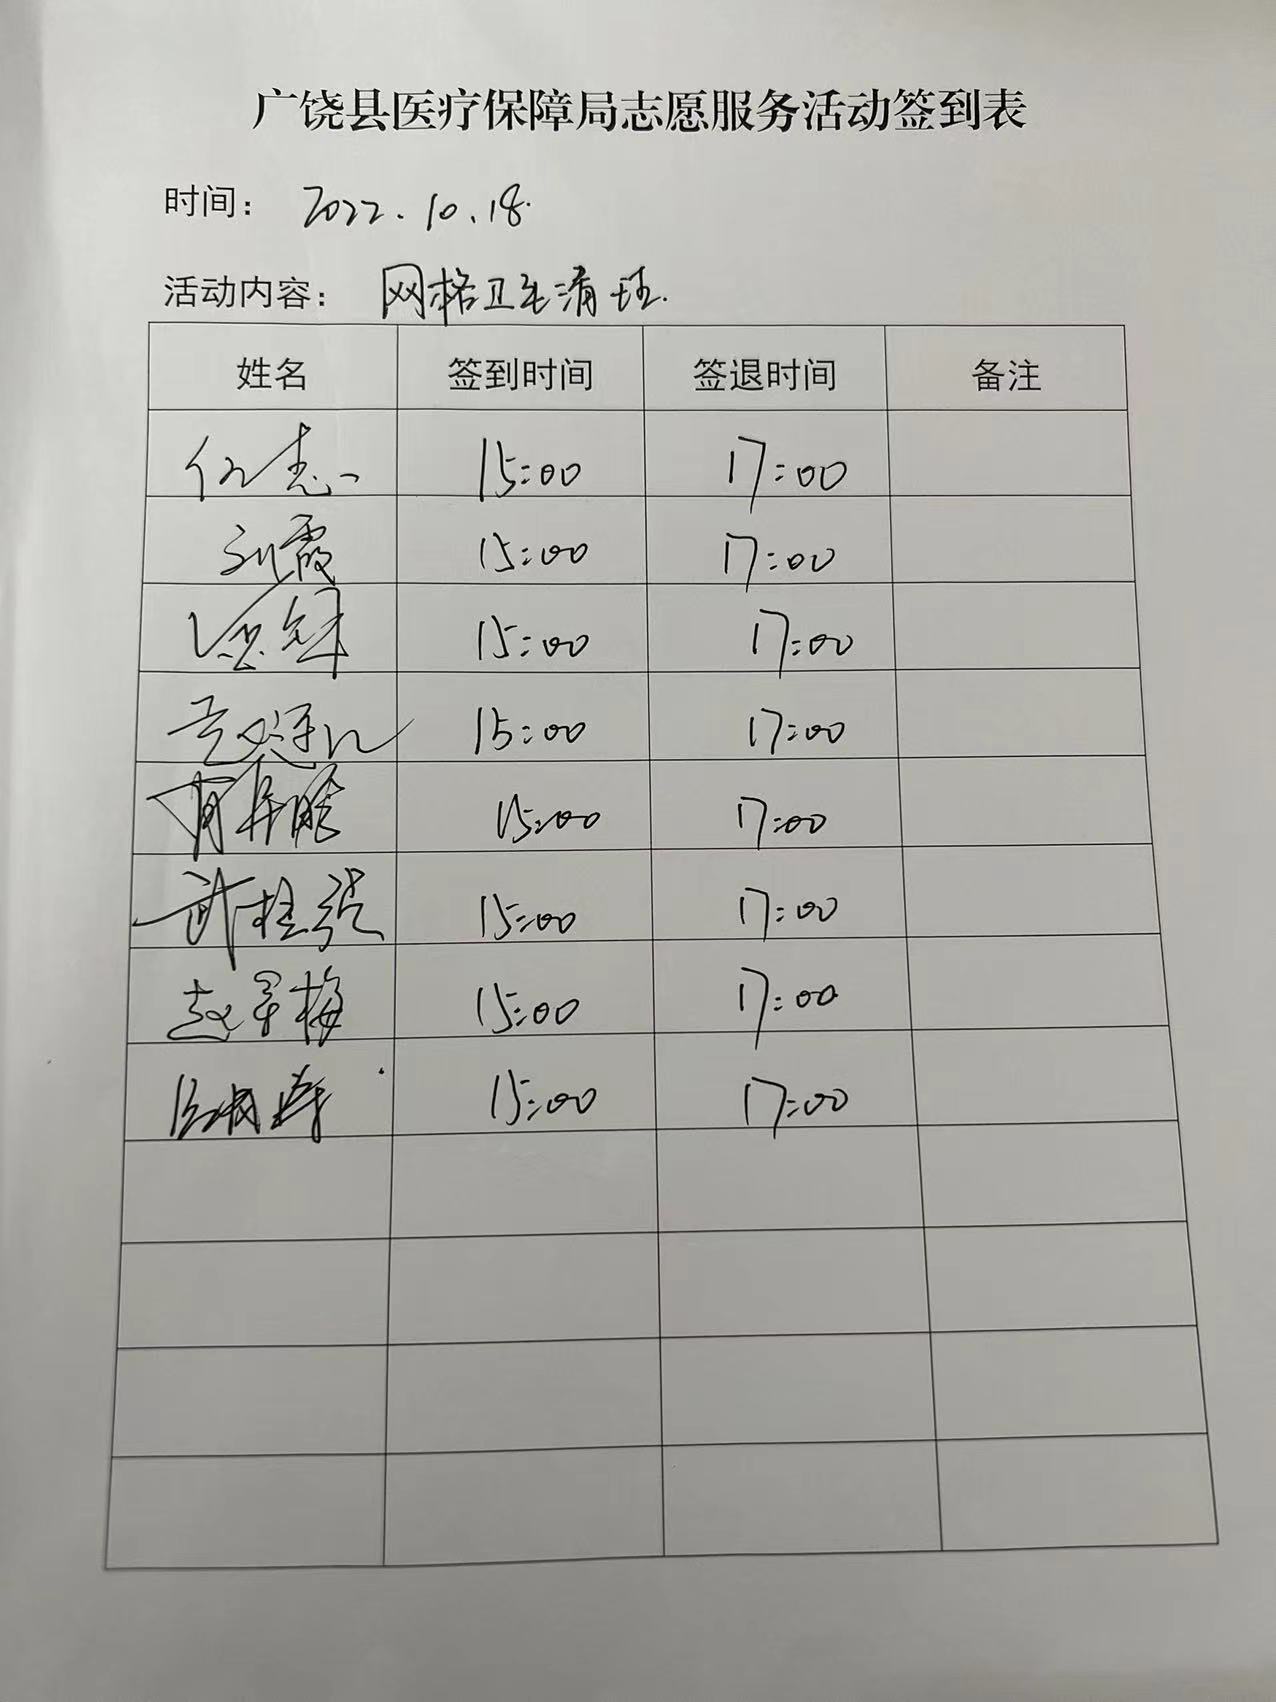 广饶县医疗保障局志愿服务活动签到表
时间： 2022.10.18.
活动内容： 网格卫生清理.
姓名 签到时间 签退时间 备注
15:00 17:00
刘霞 15:00 17:00
15:00 17:00
15:00 17:00
15:00 17:00
武桂强 15:00 17:00
赵军梅 15:00 17:00
15:00 17:00